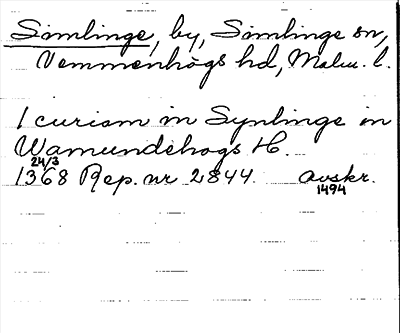 Simlinge, by, Simlinge sn,
Vemmenhögs hd, Malm. l.
1 curiam in Symlinge in
Wamundehogs H.
24/3
1368 Rep. nr 2844. avskr.
1494